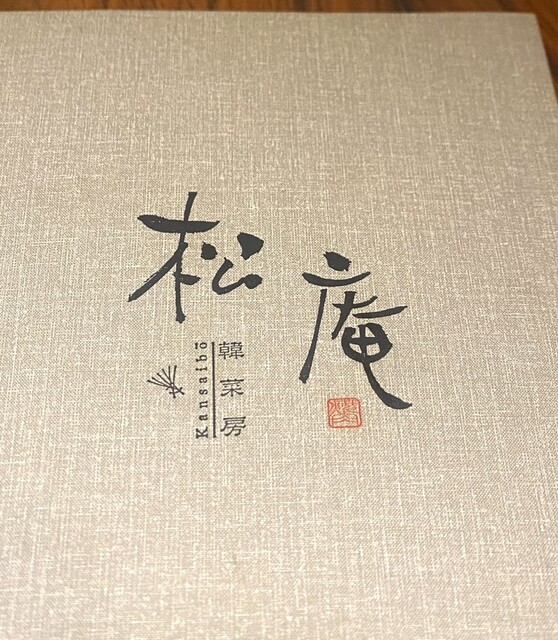 松庵
韓菜房
Kansaibō